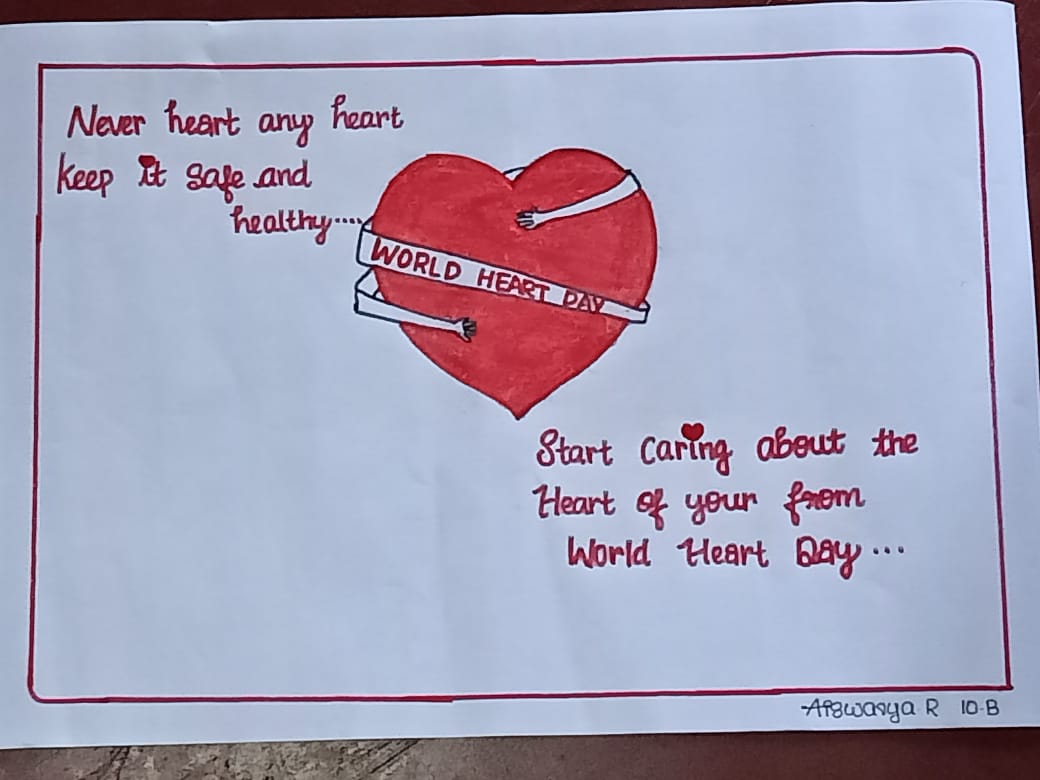 Never heart any heart
keep it safe and
healthy....
WORLD HEART DAY
Start caring about the
Heart of your from
World Heart Day...
Aiswarya R 10-B